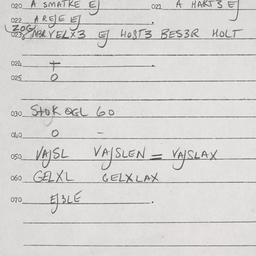 020 A SMATKE EJ 021 A HAKT3 EJ
022 AREJE EJ
ZOG
023 MARVELX3 EJ HOST3 BES3R HOLT
024 +
025 O
030 STOK OGL 60
040 O -
050 VAJSL VAJSLEN = VAJSLAX
060 GELXL GELXLAX
070 EJ3LE